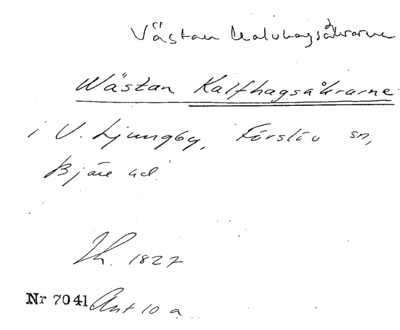 Västan Kalvhagsåkrarne
Wästan Kalfhagsåkrarne
i V. Ljungby, Förslöv sn,
Bjäre hd.
Lh. 1827
Nr 7041 Ant 10 a